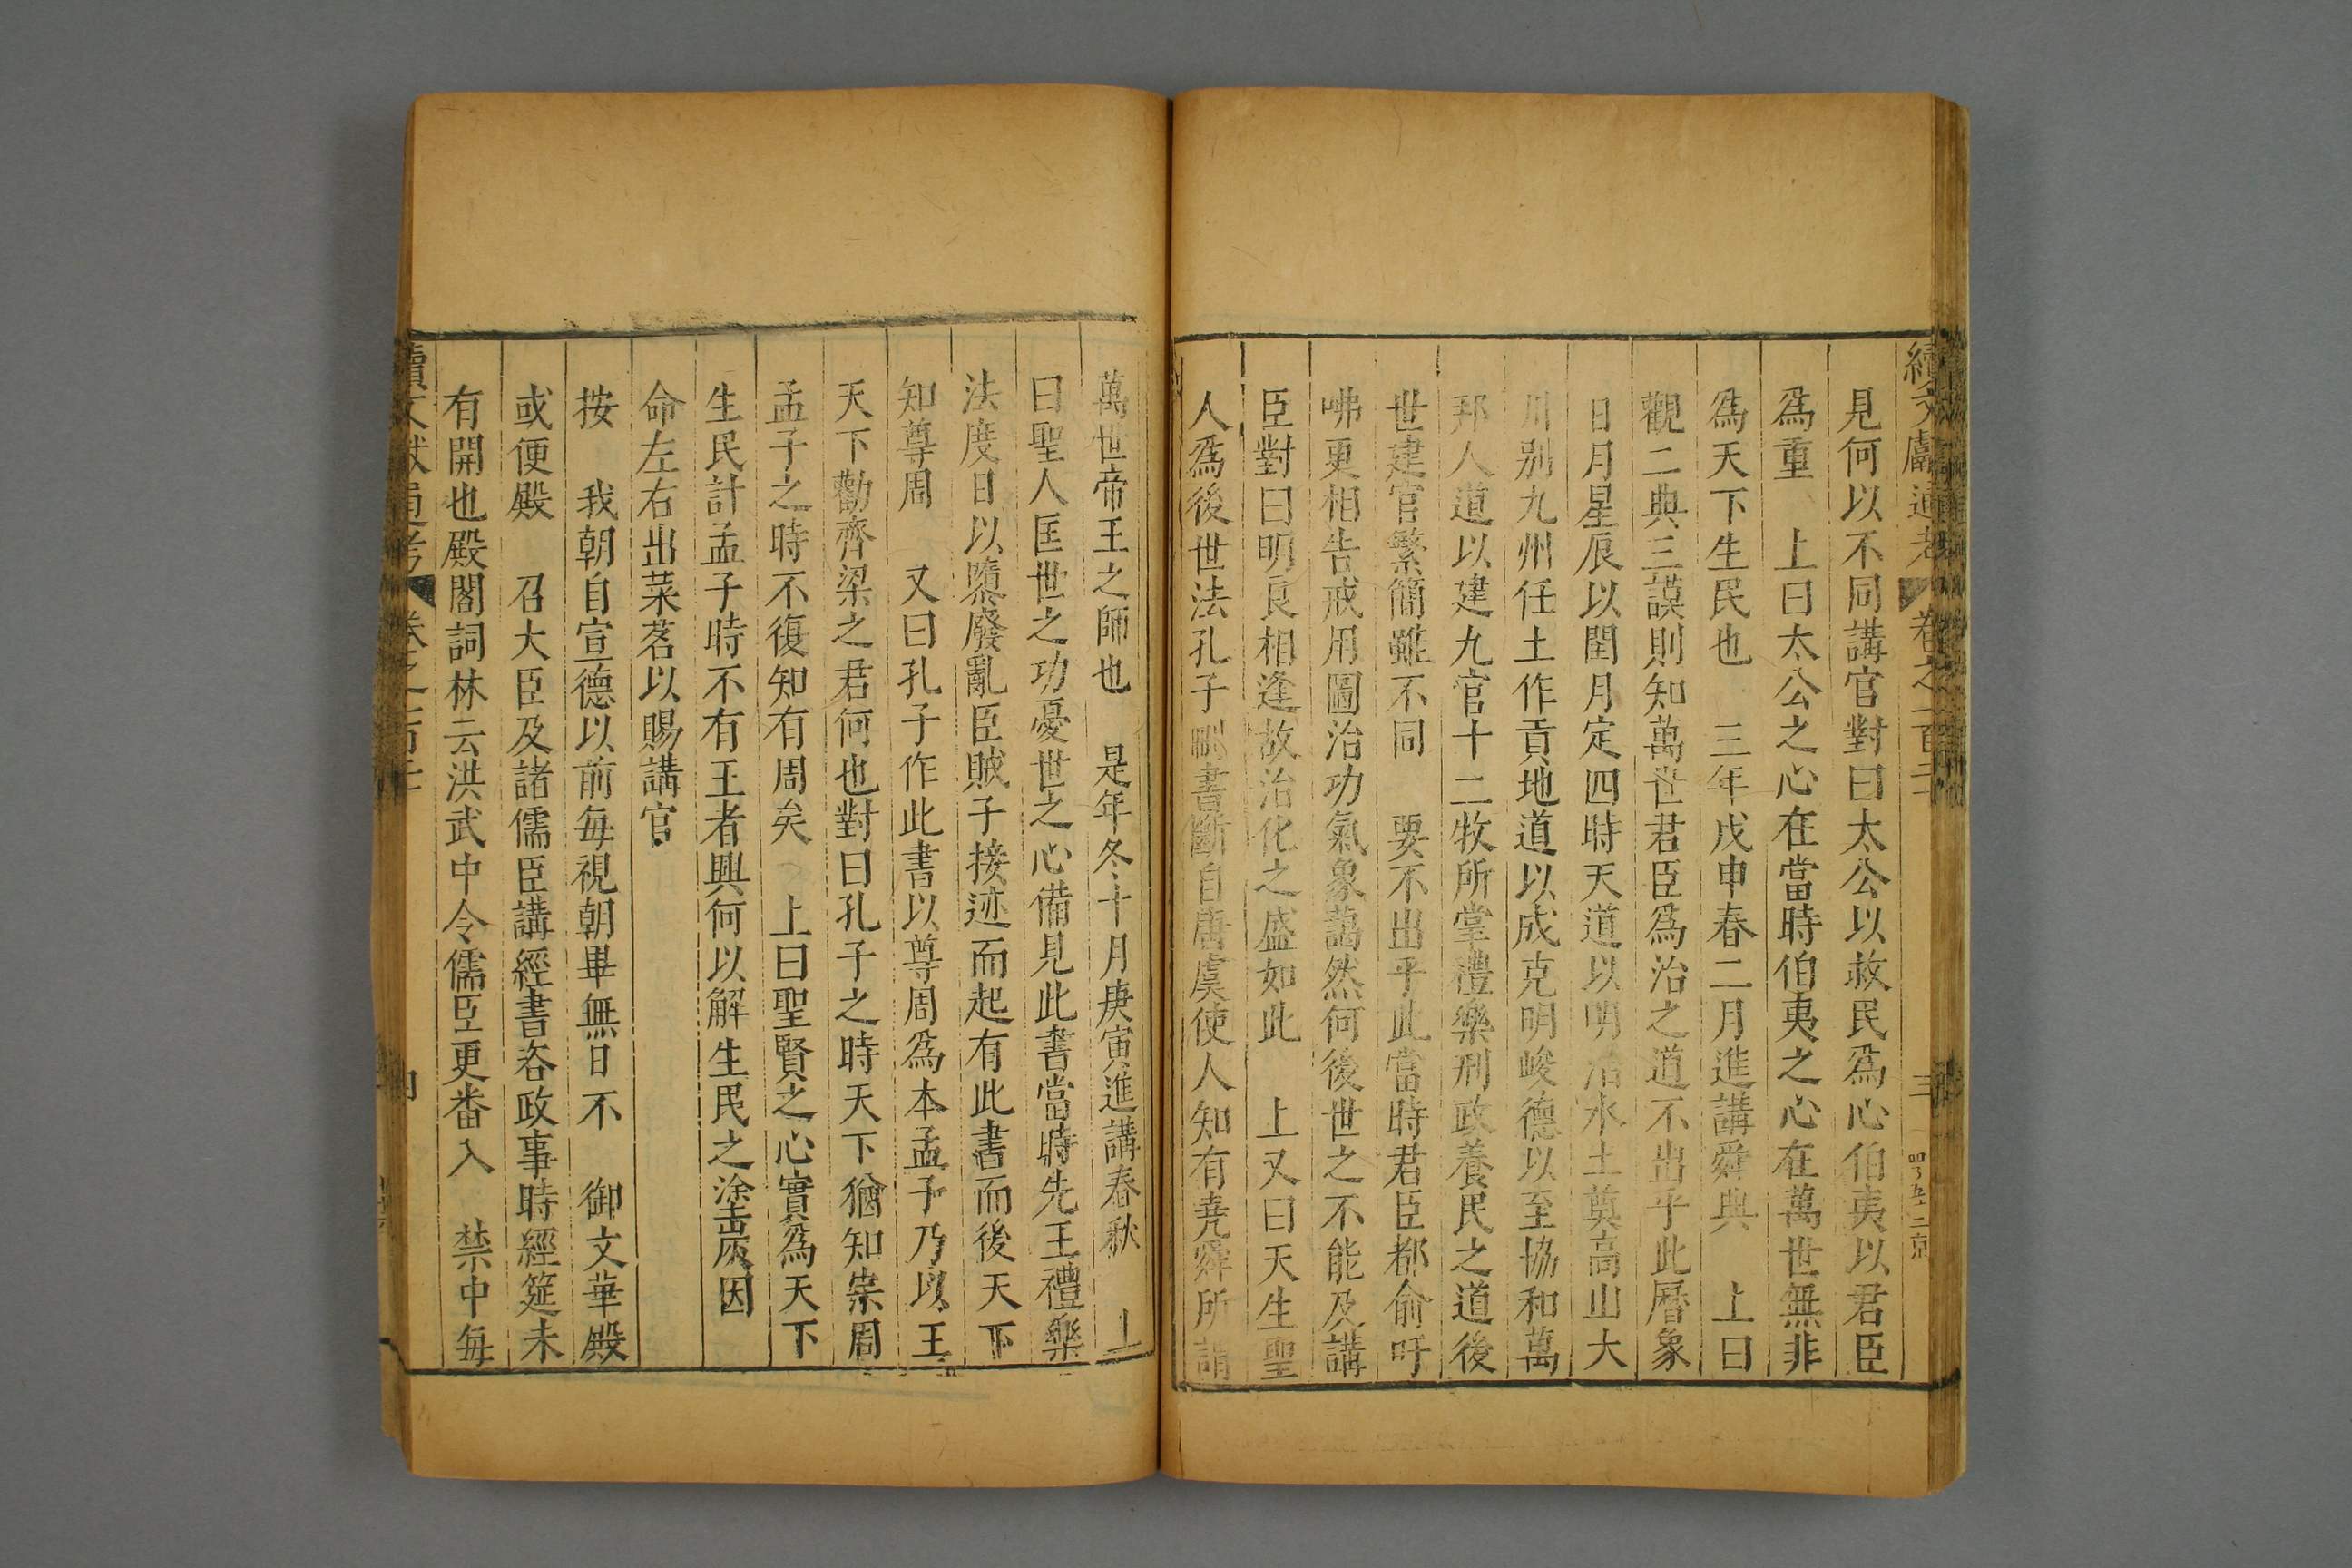 續文獻通考 卷之一百二十 三
見何以不同講官對曰太公以救民爲心伯夷以君臣
爲重 上曰太公之心在當時伯夷之心在萬世無非
爲天下生民也 三年戊申春二月進講舜典 上曰
觀二典三謨則知萬世君臣爲治之道不出乎此曆象
日月星辰以閏月定四時天道以明治水土奠高山大
川别九州任土作貢地道以成克明峻德以至協和萬
邦人道以建九官十二牧所掌禮樂刑政養民之道後
世建官繁簡雖不同 要不出乎此當時君臣都俞吁
咈更相告戒用圖治功氣象藹然何後世之不能及講
臣對曰明良相逢故治化之盛如此 上又曰天生聖
人爲後世法孔子刪書斷自唐虞使人知有堯舜所謂
萬世帝王之師也 是年冬十月庚寅進講春秋 上
曰聖人匡世之功憂世之心備見此書當時先王禮樂
法度日以隳廢亂臣賊子接迹而起有此書而後天下
知尊周 又曰孔子作此書以尊周爲本孟子乃以王
天下勸齊梁之君何也對曰孔子之時天下猶知崇周
孟子之時不復知有周矣 上曰聖賢之心實爲天下
生民計孟子時不有王者興何以解生民之塗炭因
命左右出菜茗以賜講官
按 我朝自宣德以前每視朝畢無日不 御文華殿
或便殿 召大臣及諸儒臣講經書咨政事時經筵未
有開也殿閣詞林云洪武中令儒臣更番入 禁中每